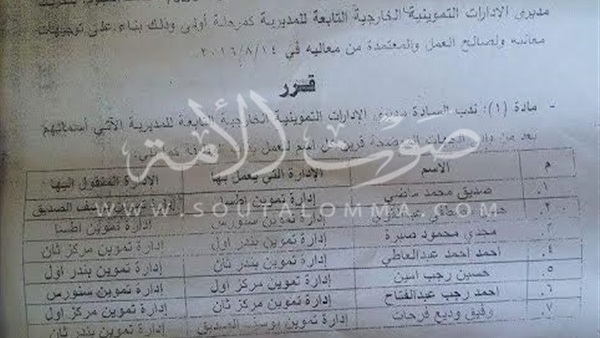 مديرى الادارات التموينية الخارجية التابعة للمديرية كمرحلة أولى وذلك بناء على توجيهات
معاليه ولصالح العمل والمعتمدة من معاليه في ٢٠١٦/٨/١٤
قرر
- مادة (١): ندب السادة مديرى الإدارات التموينية الخارجية التابعة للمديرية الآتي أسمائهم
بعد من وإلى قرين كل اسم للعمل
صوت الأمة
WWW.SOUTALOMMA.COM
م الاسم الإدارة التي يعمل بها الإدارة المنقول إليها
١. صديق محمد ماضي إدارة تموين إطسا الصديق
٢. إدارة تموين سنورس إدارة تموين اطسا
٣. مجدي محمود صبرة إدارة تموين بندر اول إدارة تموين مركز ثان
٤. احمد احمد عبدالعاطي إدارة تموين بندر ثان إدارة تموين بندر اول
٥. حسين رجب امين إدارة تموين مركز اول إدارة تموين سنورس
٦. احمد رجب عبدالفتاح إدارة تموين مركز ثان إدارة تموين مركز اول
٧. وفيق وديع فرحات إدارة تموين يوسف الصديق إدارة تموين بندر ثان